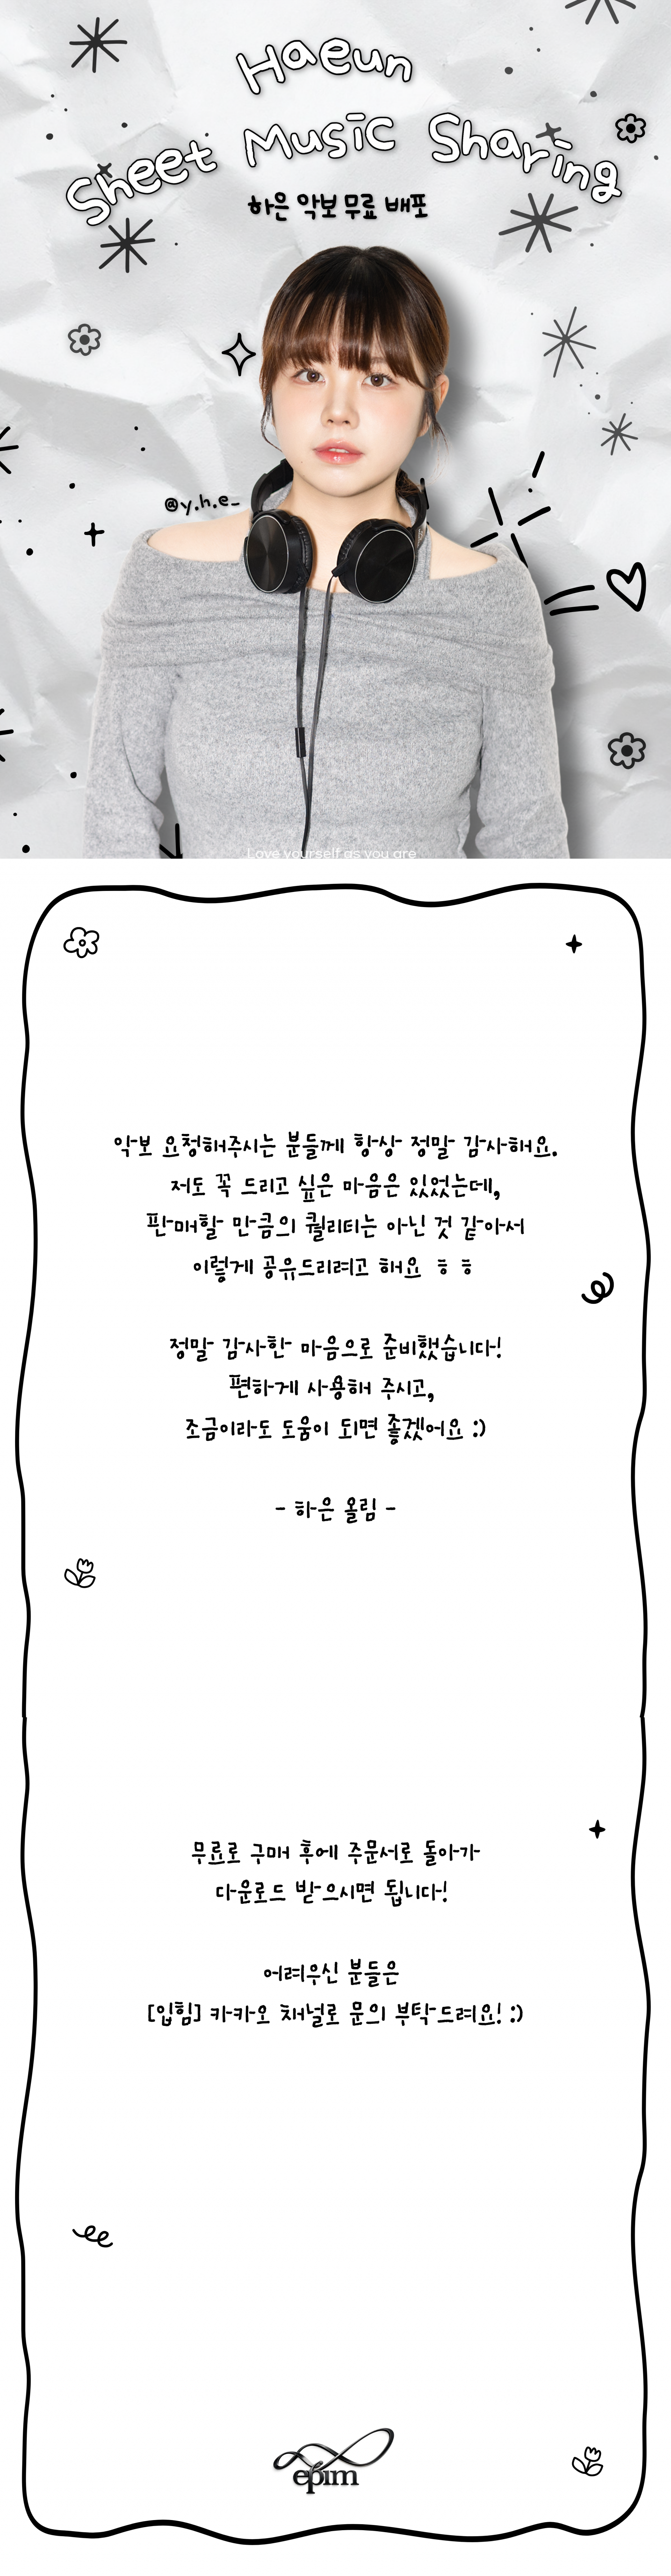 Haeun
Sheet Music Sharing
하은 악보 무료 배포
@y.h.e_
Love yourself as you are
악보 요청해주시는 분들께 항상 정말 감사해요.
저도 꼭 드리고 싶은 마음은 있었는데,
판매할 만큼의 퀄리티는 아닌 것 같아서
이렇게 공유드리려고 해요 ㅎㅎ
정말 감사한 마음으로 준비했습니다!
편하게 사용해 주시고,
조금이라도 도움이 되면 좋겠어요 :)
- 하은 올림 -
무료로 구매 후에 주문서로 돌아가
다운로드 받으시면 됩니다!
어려우신 분들은
[입힘] 카카오 채널로 문의 부탁드려요! :)
epim